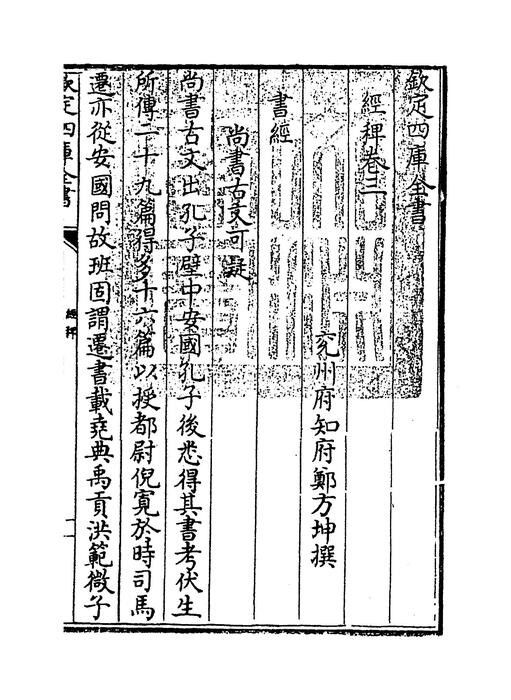 欽定四庫全書
經稗卷三
兖州府知府鄭方坤撰
書經
尚書古文可疑
尚書古文出孔子壁中安國孔子後悉得其書考伏生
所傳二十九篇得多十六篇以授都尉倪寛於時司馬
遷亦從安國問故班固謂遷書載堯典禹貢洪範微子
欽定四庫全書
經稗
一